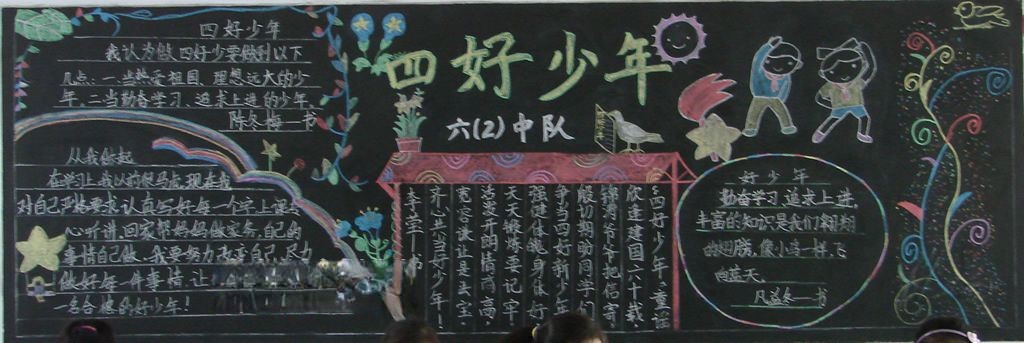 四好少年
我认为做四好少要做到以下
几点:一.当热爱祖国、理想远大的少
年、二当勤奋学习、追求上进的少年、
陈冬梅一书
从我做起
在学习上我以前很马虎,现在我
对自己严格要求,认真写好每一个字,上课专
心听讲,回家帮妈妈做家务,自己的
事情自己做、我要努力改变自己,尽力
做好每一件事情,让
一名合格的好少年!
四好少年
六(2)中队
《四好少年》童谣
欣逢建国六十载,
锦涛爷爷把信寄
殷切期盼同学们
争当四好新少年
强健体魄身体好
天天锻炼要记牢
活泼开朗情操高,
宽容谦让是法宝,
齐心共当好少年!
李莹一书
好少年
勤奋学习,追求上进,
丰富的知识是我们翱翔
的翅膀,像小鸟一样,飞
向蓝天。
一书